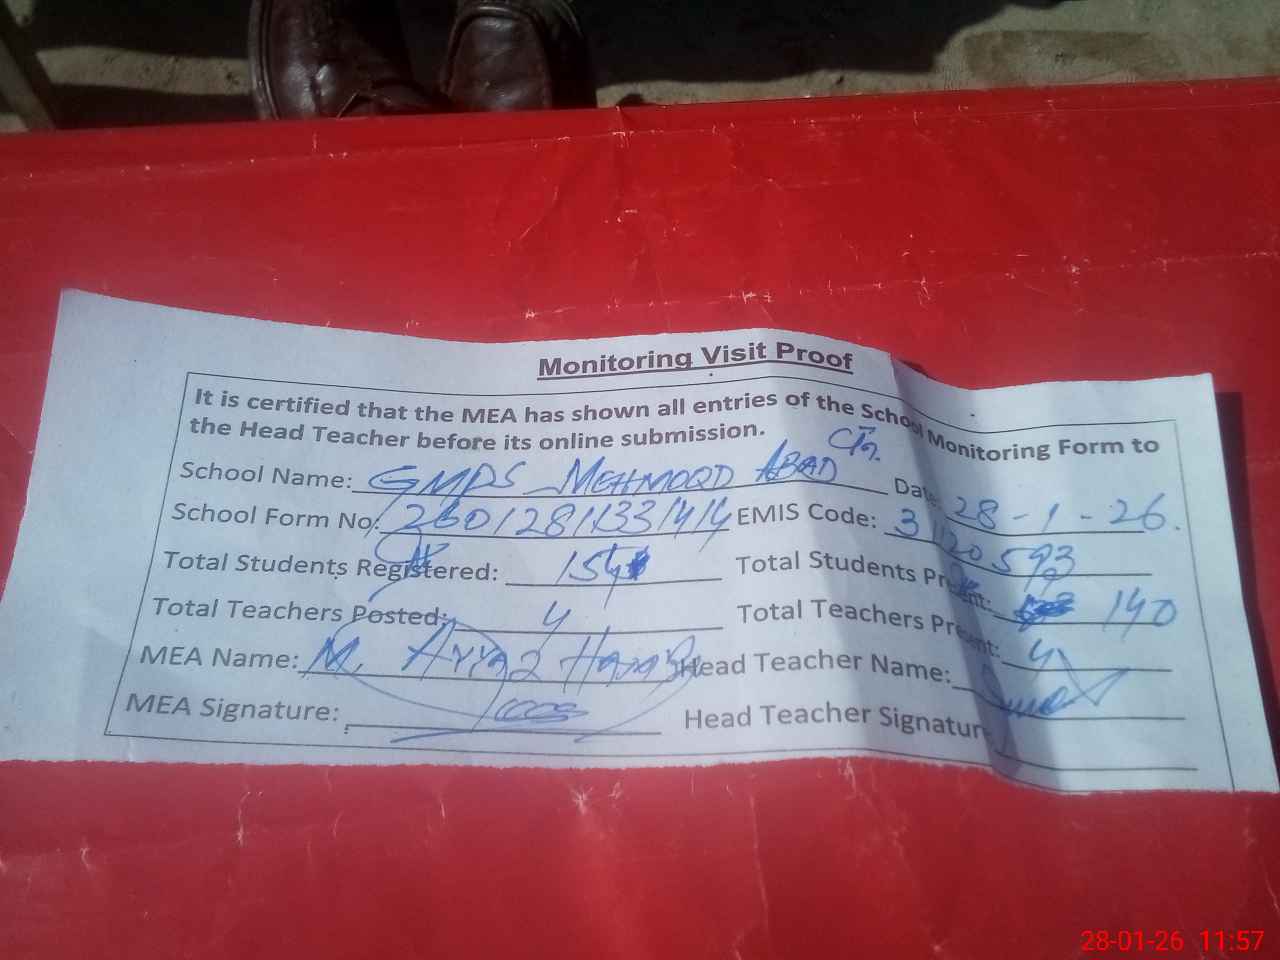 Monitoring Visit Proof
It is certified that the MEA has shown all entries of the School Monitoring Form to
the Head Teacher before its online submission.
School Name: GMPS MEHMOOD ABAD Date: 28-1-26.
School Form No: 26012811331414 EMIS Code: 31120593
Total Students Registered: 154 Total Students Present: 140
Total Teachers Posted: 4 Total Teachers Present: 4
MEA Name: M. Ayyaz Head Teacher Name:
MEA Signature: Head Teacher Signature:
28-01-26 11:57